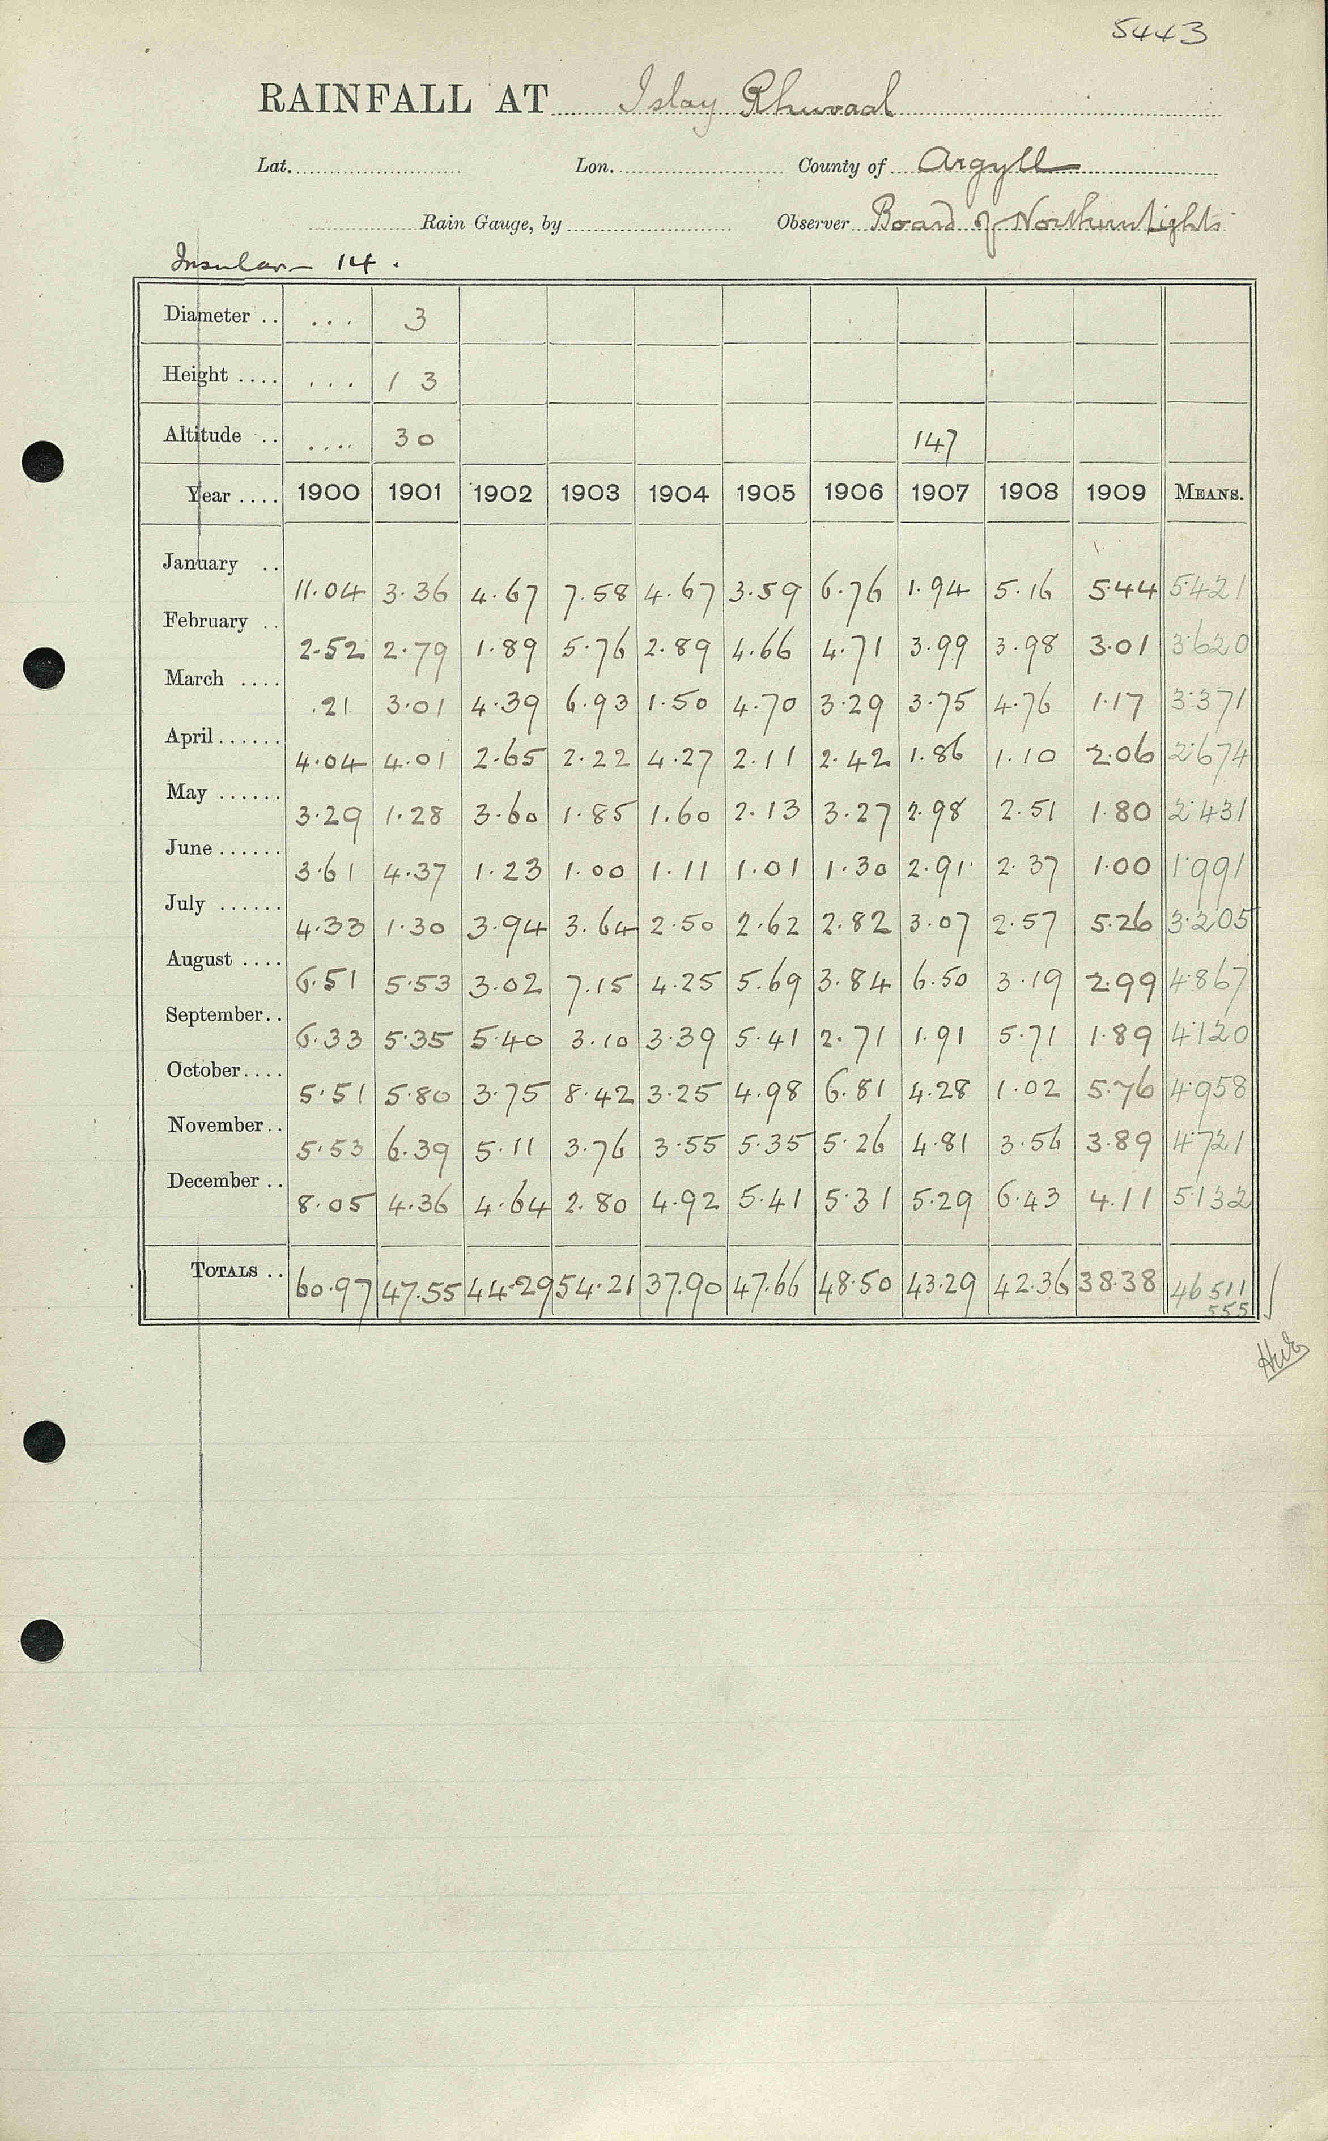 5443
RAINFALL AT Islay Rhuvaal
Lat. Lon. County of Argyll
Rain Gauge, by Observer Board of Northern Lights
Insular 14.
Diameter .. ... 3
Height .... ... 1 3
Altitude .. .... 30 147
Year .... 1900 1901 1902 1903 1904 1905 1906 1907 1908 1909 MEANS.
January .. 11.04 3.36 4.67 7.58 4.67 3.59 6.76 1.94 5.16 5.44 5.421
February .. 2.52 2.79 1.89 5.76 2.89 4.66 4.71 3.99 3.98 3.01 3.620
March .... .21 3.01 4.39 6.93 1.50 4.70 3.29 3.75 4.76 1.17 3.371
April...... 4.04 4.01 2.65 2.22 4.27 2.11 2.42 1.86 1.10 2.06 2.674
May ...... 3.29 1.28 3.60 1.85 1.60 2.13 3.27 2.98 2.51 1.80 2.431
June ...... 3.61 4.37 1.23 1.00 1.11 1.01 1.30 2.91 2.37 1.00 1.991
July ...... 4.33 1.30 3.94 3.64 2.50 2.62 2.82 3.07 2.57 5.26 3.205
August .... 6.51 5.53 3.02 7.15 4.25 5.69 3.84 6.50 3.19 2.99 4.867
September.. 6.33 5.35 5.40 3.10 3.39 5.41 2.71 1.91 5.71 1.89 4.120
October.... 5.51 5.80 3.75 8.42 3.25 4.98 6.81 4.28 1.02 5.76 4.958
November.. 5.53 6.39 5.11 3.76 3.55 5.35 5.26 4.81 3.56 3.89 4.721
December .. 8.05 4.36 4.64 2.80 4.92 5.41 5.31 5.29 6.43 4.11 5.132
TOTALS .. 60.97 47.55 44.29 54.21 37.90 47.66 48.50 43.29 42.36 38.38 46 511
555